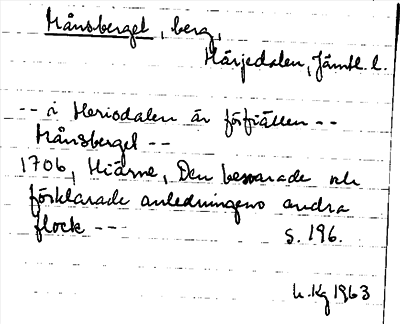 Månsberget, berg,
Härjedalen, Jämtl. l.
-- i Heriodalen är förfiällen --
Månsberget --
1706, Hiärne, Den beswarade och
förklarade anledningens andra
flock -- s. 196.
1963